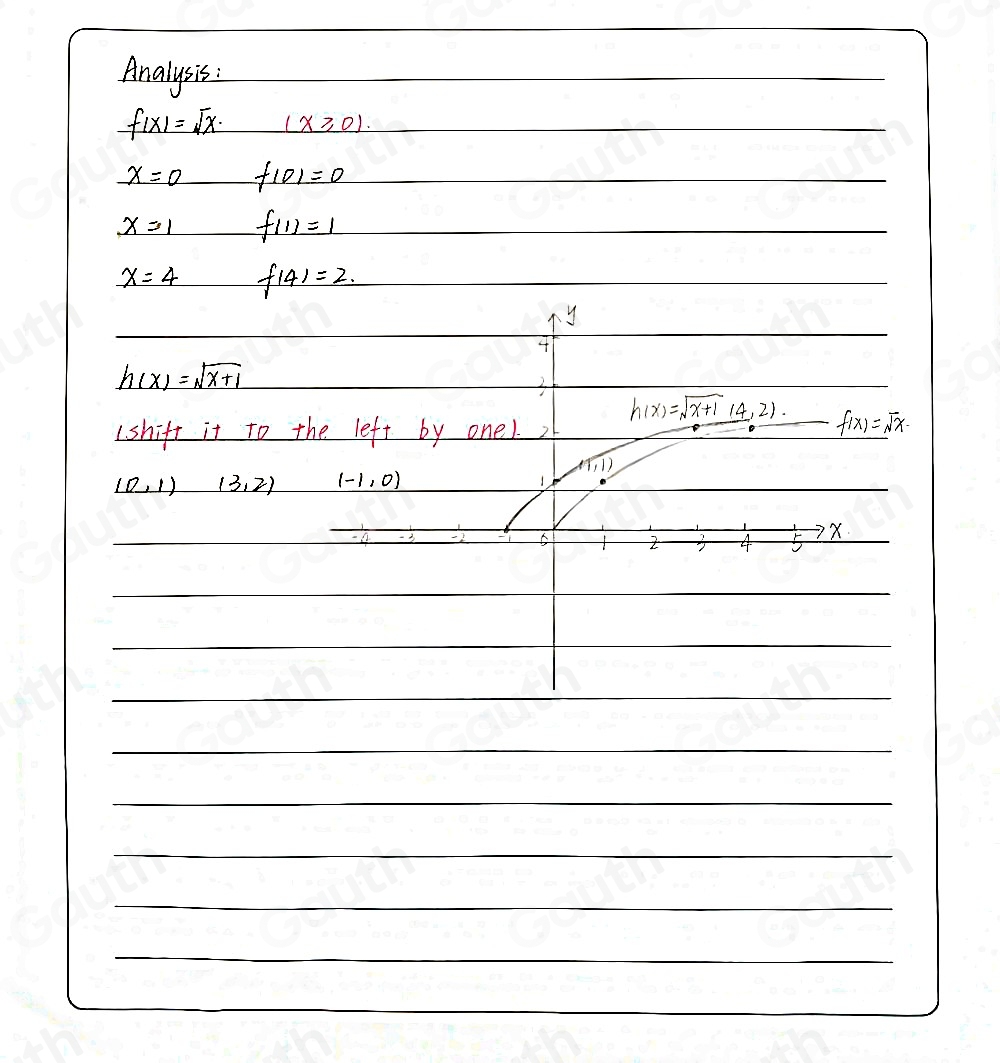 Analysis:
f(x) = √x. (x ≥ 0).
x = 0 f(0) = 0
x = 1 f(1) = 1
x = 4 f(4) = 2.
h(x) = √x+1
(shift it to the left by one).
(0,1) (3,2) (-1,0)
y
4
3
2
1
h(x) = √x+1 (4,2).
f(x) = √x.
(1,1)
-4 -3 -2 -1 0 1 2 3 4 5 x
Gauth